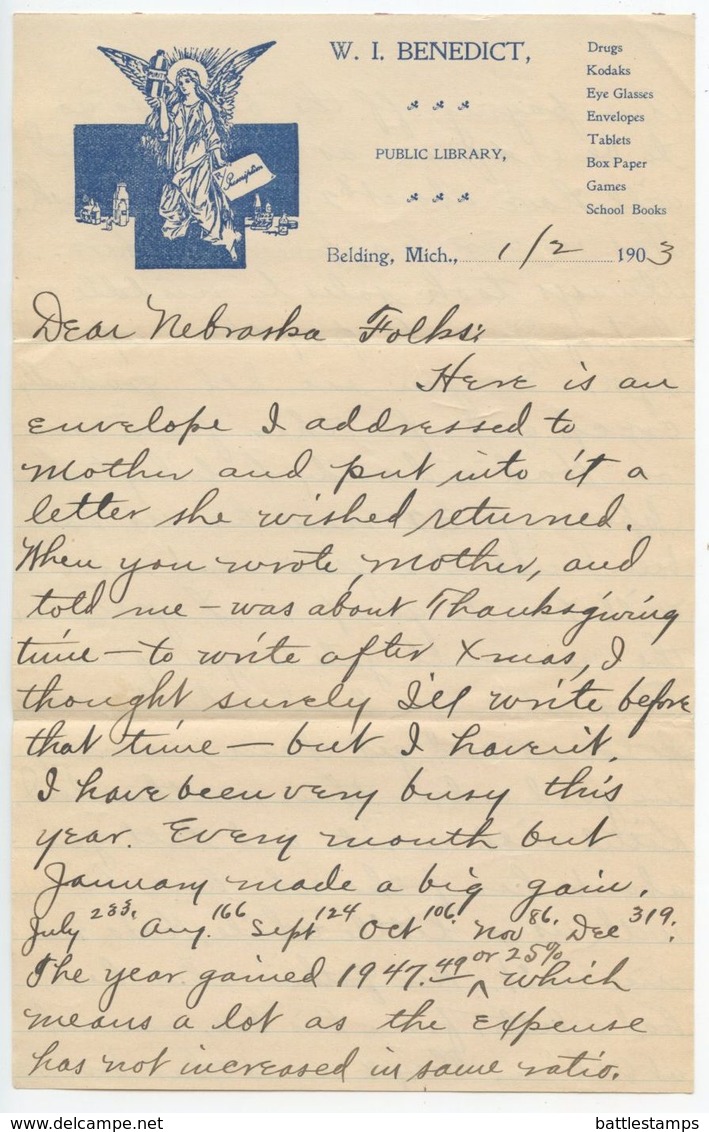 W. I. BENEDICT,
PUBLIC LIBRARY,
Drugs
Kodaks
Eye Glasses
Envelopes
Tablets
Box Paper
Games
School Books
Belding, Mich., 1/2 1903
Dear Nebraska Folks:
Here is an
envelope I addressed to
Mother and put into it a
letter she wished returned.
When you wrote, Mother, and
told me – was about Thanksgiving
time – to write after Xmas, I
thought surely I'll write before
that time – but I haven't.
I have been very busy this
year. Every month but
January made a big gain.
July 233. Aug. 166 Sept 124 Oct 106. Nov 86. Dec 319.
or 25%
The year gained 1947.49 ^ which
means a lot as the expense
has not increased in same ratio.
battlestamps